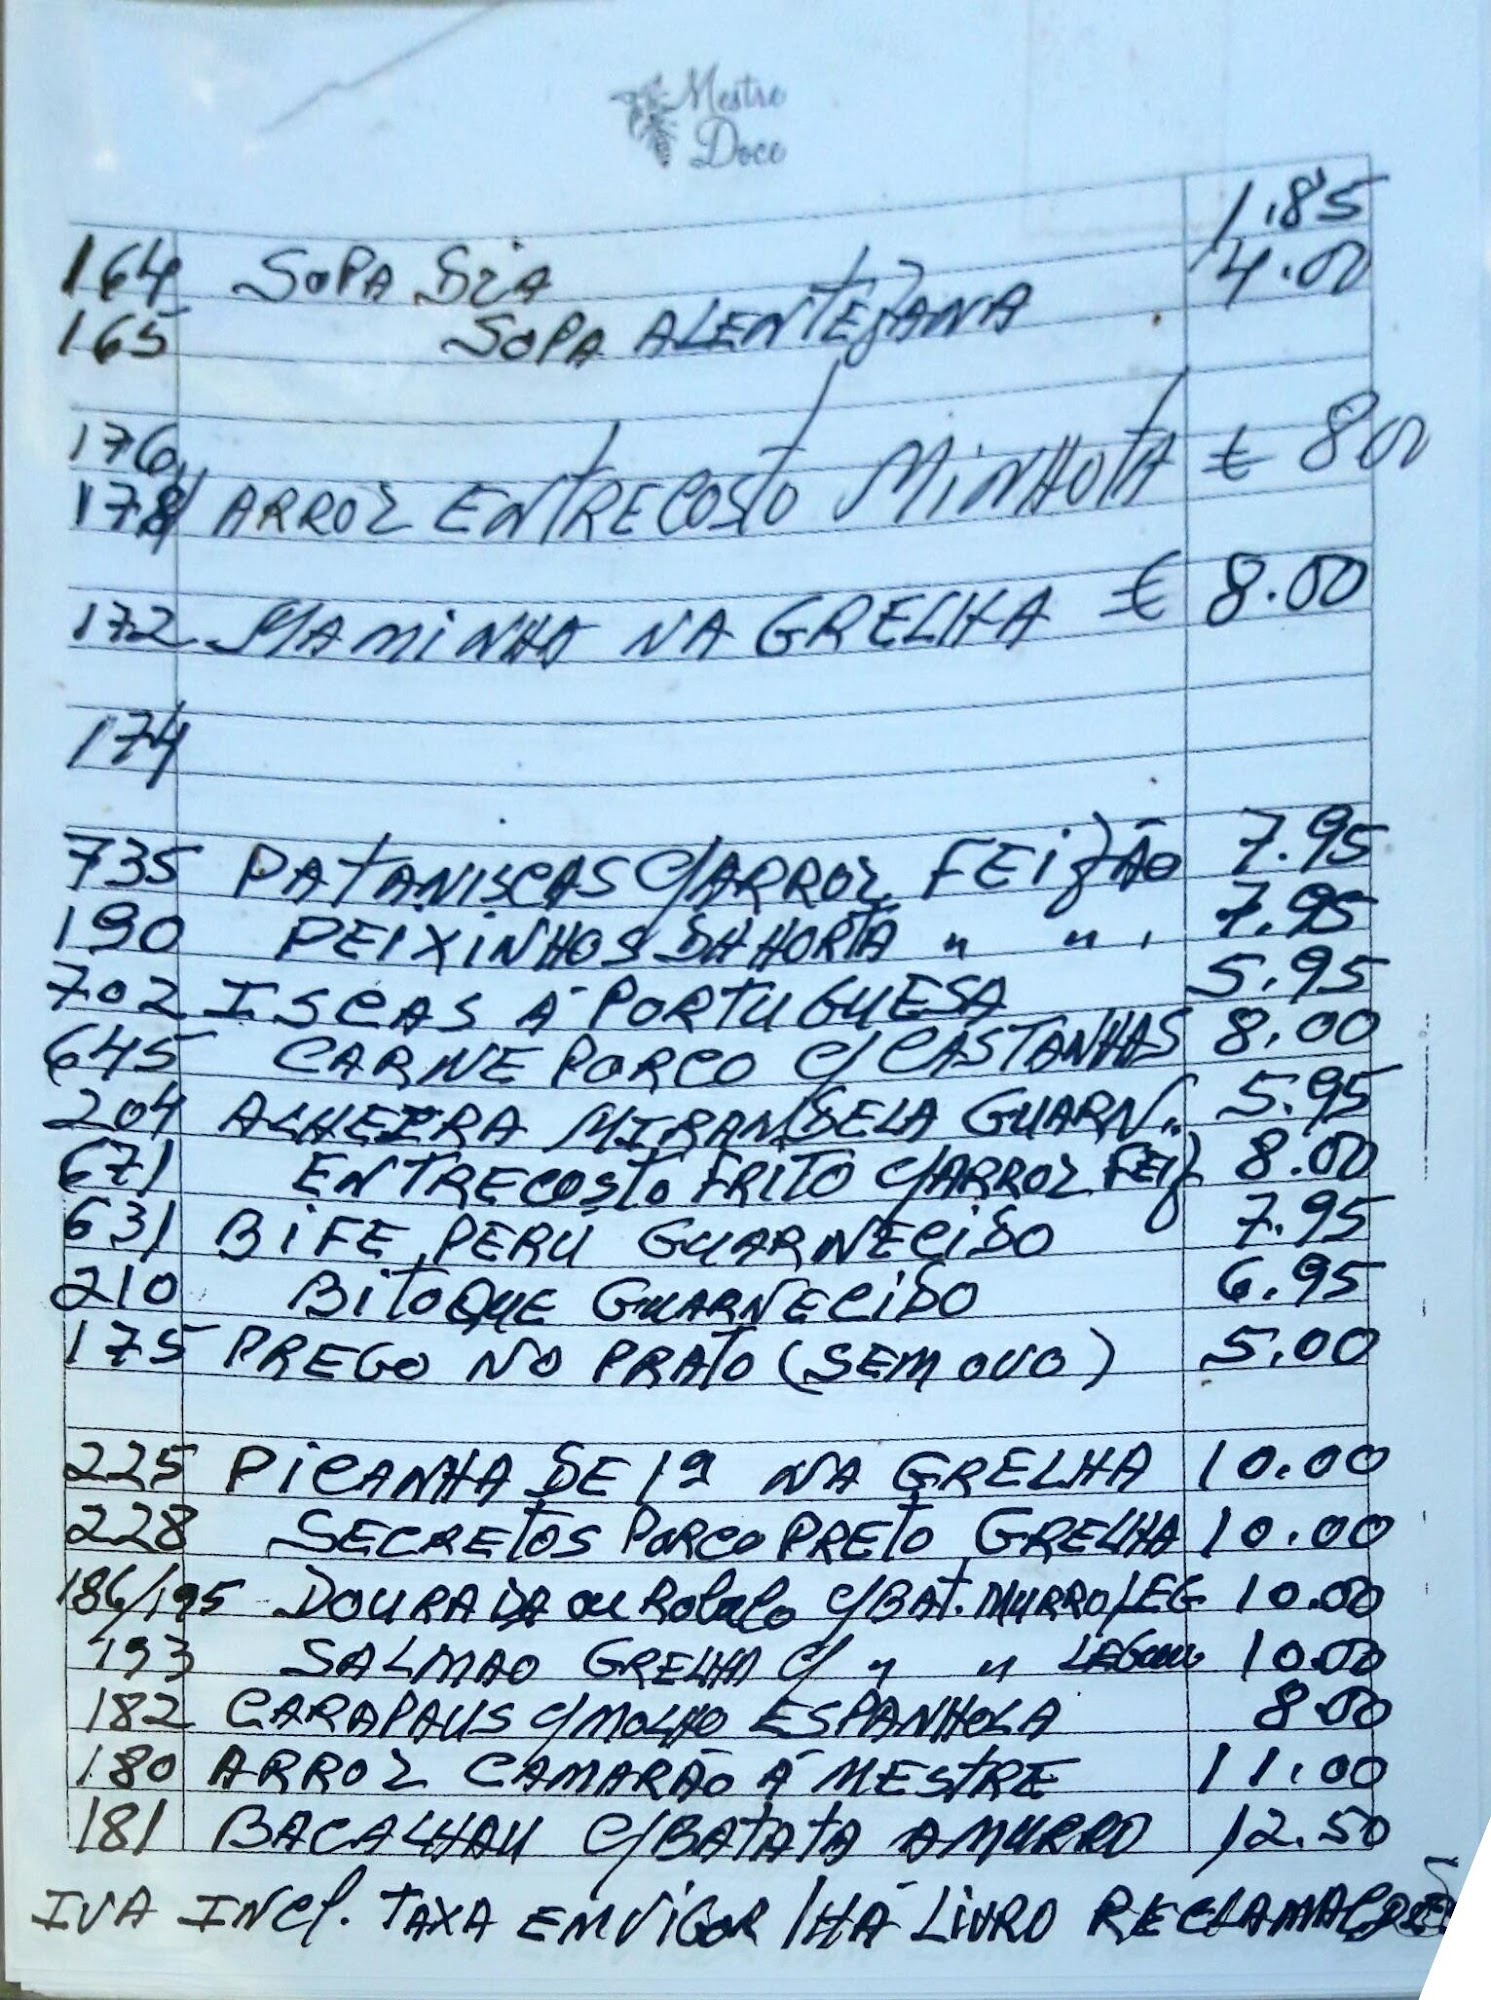 Mestre
Doce
164 SOPA DIA 1.85
165 SOPA ALENTEJANA 4.00
176
178 ARROZ ENTRECOSTO MINHOTA € 800
172 MAMINHA NA GRELHA € 8.00
174
735 PATANISCAS C/ARROZ FEIJÃO 7.95
190 PEIXINHOS DA HORTA " " . 7.95
702 ISCAS Á PORTUGUESA 5.95
645 CARNE PORCO C/CASTANHAS 8.00
204 ALHEIRA MIRANDELA GUARN. 5.95
671 ENTRECOSTO FRITO C/ARROZ FEIJ 8.00
631 BIFE PERÚ GUARNECIDO 7.95
210 BITOQUE GUARNECIDO 6.95
175 PREGO NO PRATO (SEM OVO) 5.00
225 PICANHA DE 1ª NA GRELHA 10.00
228 SECRETOS PORCO PRETO GRELHA 10.00
186/195 DOURADA ou Robalo C/BAT. MURRO/LEG 10.00
193 SALMAO GRELHA C/ " " LEGUM 10.00
182 CARAPAUS C/MOLHO ESPANHOLA 8.00
180 ARROZ CAMARÃO Á MESTRE 11.00
181 BACALHAU C/BATATA A MURRO 12.50
IVA INCL. TAXA EM VIGOR / HÁ LIVRO RECLAMAÇÕES